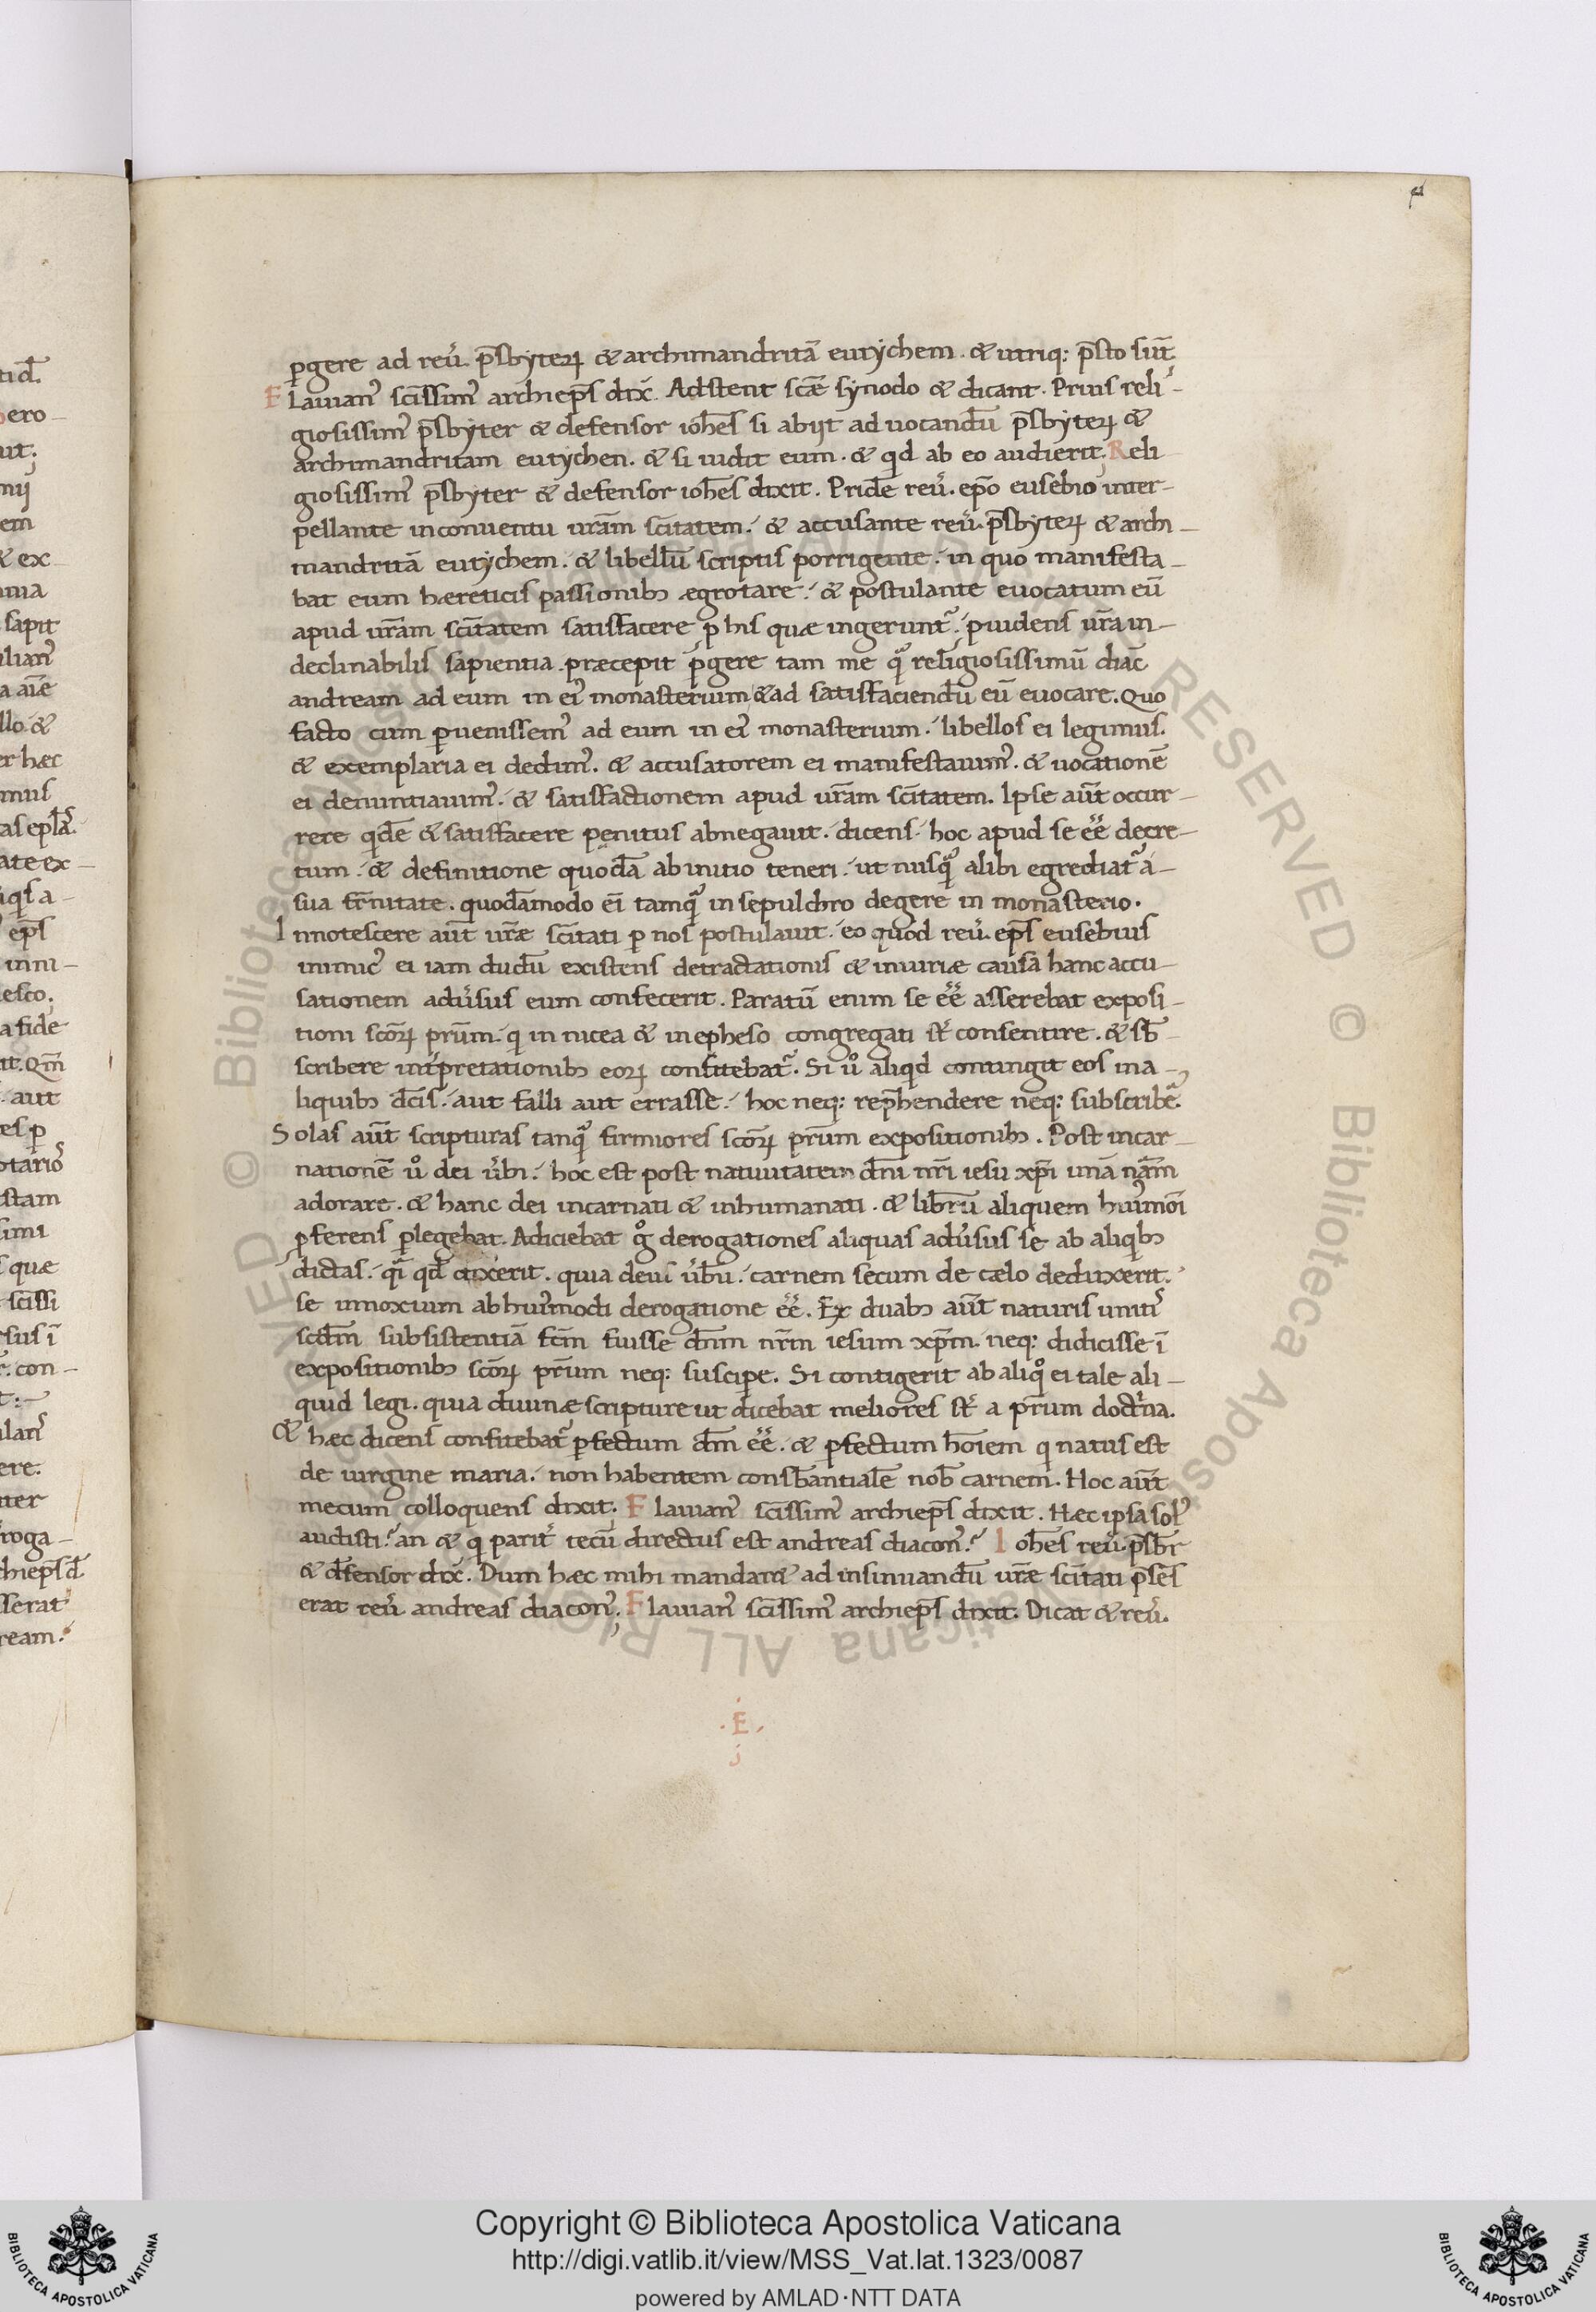 ꝑgere ad reuͣ. p̄sbyterꝝ & archimandritā eutychem. & utriq; p̄sto sūt.
Flauian᾽ sc̄issim᾽ archiep̄s dix̄. Adstent sc̄æ synodo & dicant. Prius reli-
giosissim᾽ p̄sbyter & defensor ioh̄es si abiit ad uocandū p̄sbyterꝝ &
archimandritam eutychen. & si uidit eum. & qd ab eo audierit; Reli
giosissim᾽ p̄sbyter & defensor ioh̄es dixit. Pridē reuͣ. ep̄o eusebio inter-
pellante in conuentu ur̄am sc̄itatem. & accusante reuͣ. p̄sbyterꝝ & archi-
mandritā eutychem. & libellū scriptis porrigente. in quo manifesta-
bat eum hæreticis passionibꝫ ægrotare. & postulante euocatum eū
apud ur̄am sc̄itatem satisfacere ꝑ his quæ ingerunt᾽. puidens ur̄a in-
declinabilis sapientia. præcepit ꝑgere tam me qͣ religiosissimū diac̄
andream ad eum in ei᾽ monasterium & ad satisfaciendū eū euocare. Quo
facto cum ꝑuenissem᾽ ad eum in ei᾽ monasterium. libellos ei legimus.
& exemplaria ei dedim᾽. & accusatorem ei manifestauim᾽. & uocationē
ei denuntiauim᾽. & satisfactionem apud ur̄am sc̄itatem. Ipse aūt occur-
rere qdē & satisfacere penitus abnegauit. dicens. hoc apud se ēē decre-
tum. & definitione quodā ab initio teneri. ut nusqͣ alibi egrediat᾽ a-
sua fr̄nitate. quodāmodo eī tamqͣ in sepulchro degere in monasterio.
Innotescere aūt ur̄æ sc̄itati ꝑ nos postulauit. eo quod reuͣ. ep̄s eusebius
inimic᾽ ei iam dudū existens detractationis & iniuriæ causā hanc accu-
sationem adu᾽sus eum confecerit. Paratū enim se ēē asserebat exposi-
tioni sc̄orꝝ pr̄um. qi in nicea & in epheso congregati st᾽ consentire. & sb̄
scribere int᾽pretationibꝫ eorꝝ confitebat᾽. Si uͦ aliqid contingit eos in a-
liquibꝫ dc̄is. aut falli aut errasse. hoc neq; rep̄hendere neq; subscribe᾽.
Solas aūt scripturas tanqͣ firmiores sc̄orꝝ pr̄um expositionibꝫ. Post incar-
nationē uͦ dei u᾽bi. hoc est post natiuitatem dn̄i nr̄i iesu xp̄i unā nām
adorare. & hanc dei incarnati & inhumanati. & librū aliquem hui᾽moī
ꝓferens ꝑlegebat. Adiciebat gͦ derogationes aliquas adu᾽sus se ab aliqibꝫ
dictas. qͣi qd̄ dixerit. quia deus u᾽bū. carnem secum de cælo deduxerit.
se innoxium ab hui᾽modi derogatione ēē. Ex duabꝫ aūt naturis uniti᾽
scd̄m subsistentiā fc̄m fuisse dn̄m nr̄m iesum xp̄m. neq; didicisse ī
expositionibꝫ sc̄orꝝ pr̄um neq; suscipe. Si contigerit ab aliqͦ ei tale ali-
quid legi. quia diuinæ scripture ut dicebat meliores st᾽ a pr̄um doct᾽na.
& hæc dicens confitebat᾽ ꝑfectum dm̄ ēē. & ꝑfectum hōiem qi natus est
de uirgine maria. non habentem consb̄antialē nob̄ carnem. Hoc aūt
mecum colloquens dixit. Flauian᾽ sc̄issim᾽ archiep̄s dixit. Hæc ipsa sol᾽
audisti? an & qi parit᾽ tecū directus est andreas diacon᾽? Ioh̄es reuͣ. p̄sb̄r
& dēfensor dix̄. Dum hæc mihi mandaret ad insinuandū ur̄æ sc̄itati p̄ses
erat reuͣ andreas diacon᾽; Flauian᾽ sc̄issim᾽ archiep̄s dixit. Dicat & reuͣ.
.E,
Copyright © Biblioteca Apostolica Vaticana
http://digi.vatlib.it/view/MSS_Vat.lat.1323/0087
powered by AMLAD·NTT DATA